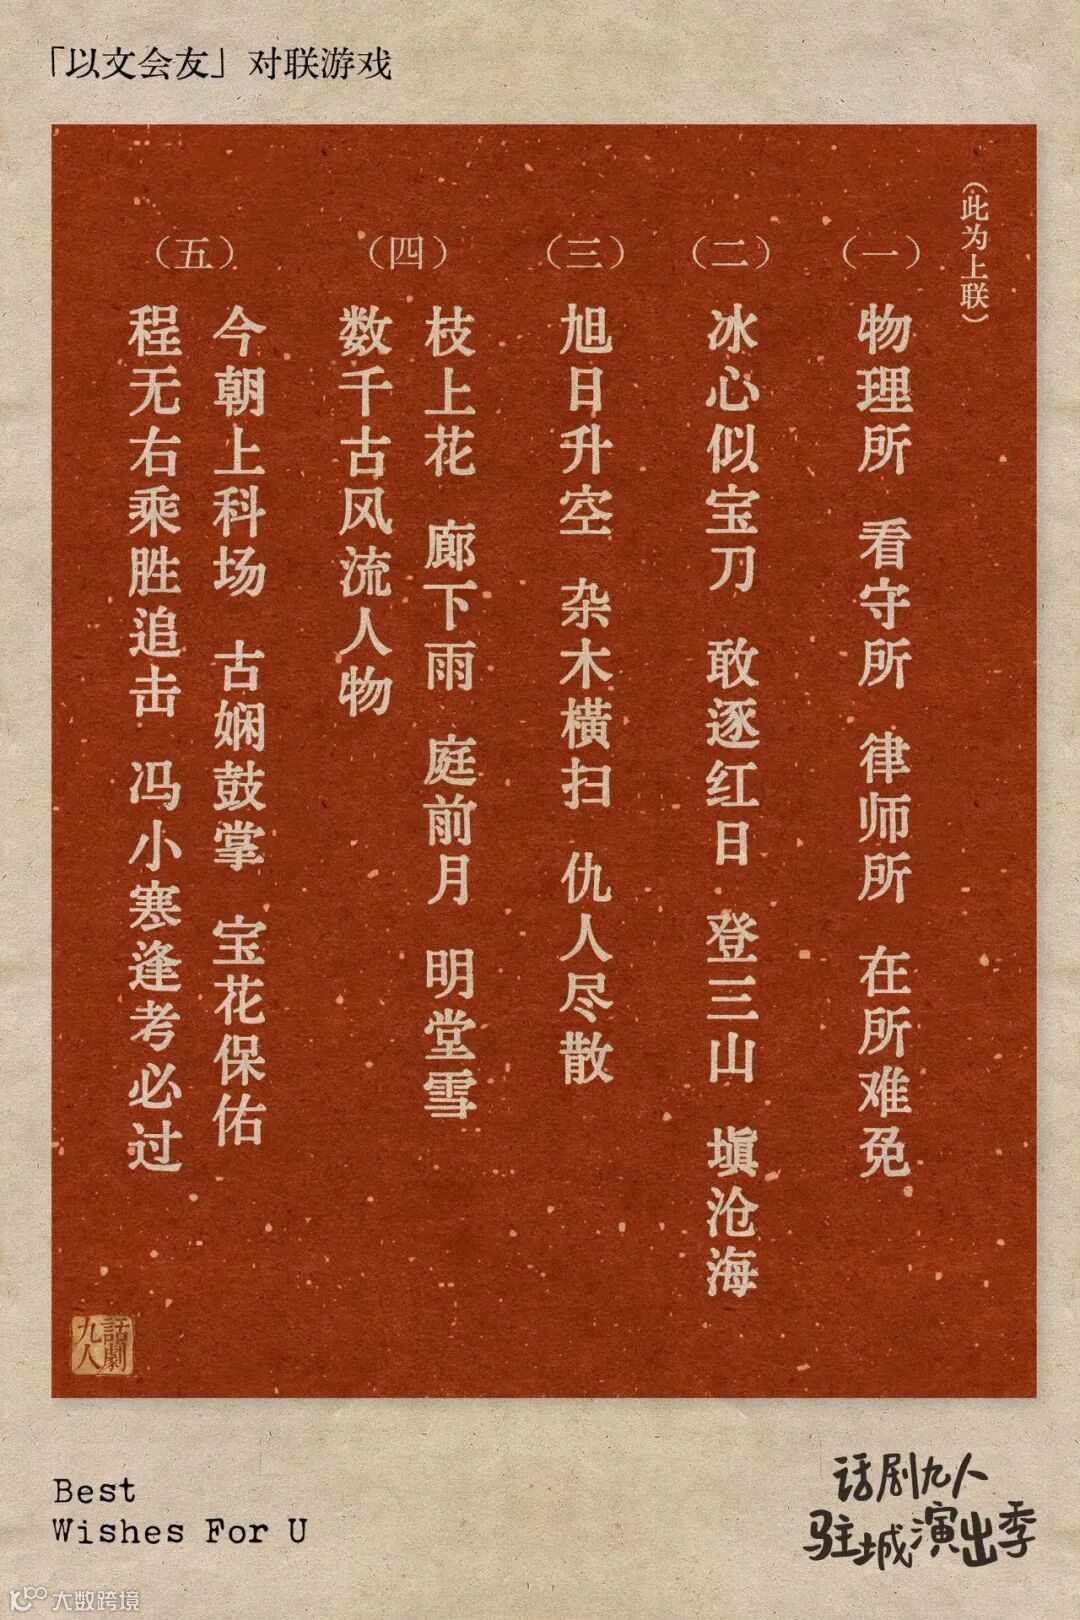 「以文会友」对联游戏
（此为上联）
（一）
物理所 看守所 律师所 在所难免
（二）
冰心似宝刀 敢逐红日 登三山 填沧海
（三）
旭日升空 杂木横扫 仇人尽散
（四）
枝上花 廊下雨 庭前月 明堂雪
数千古风流人物
（五）
今朝上科场 古娴鼓掌 宝花保佑
程无右乘胜追击 冯小寒逢考必过
話劇九人
Best
Wishes For U
话剧九人
驻城演出季
大数跨境